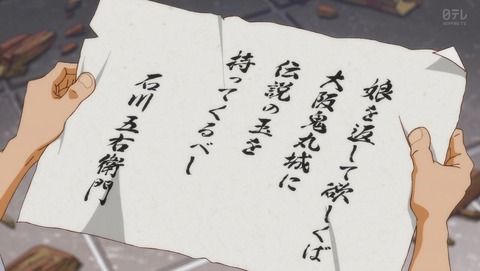 娘を返して欲しくば
大阪鬼丸城に
伝説の玉を
持ってくるべし
石川五右衛門
日テレ